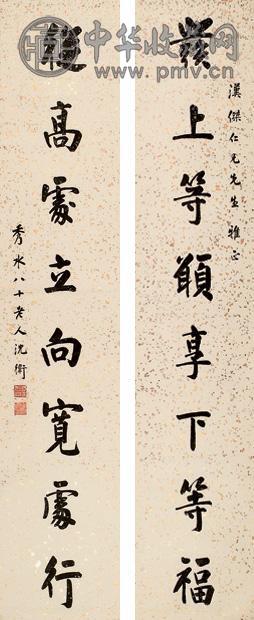 中华收藏网
www.pmv.cn
漢傑仁兄先生雅正
發上等願享下等福
高處立向寬處行
秀水八十老人沈衛